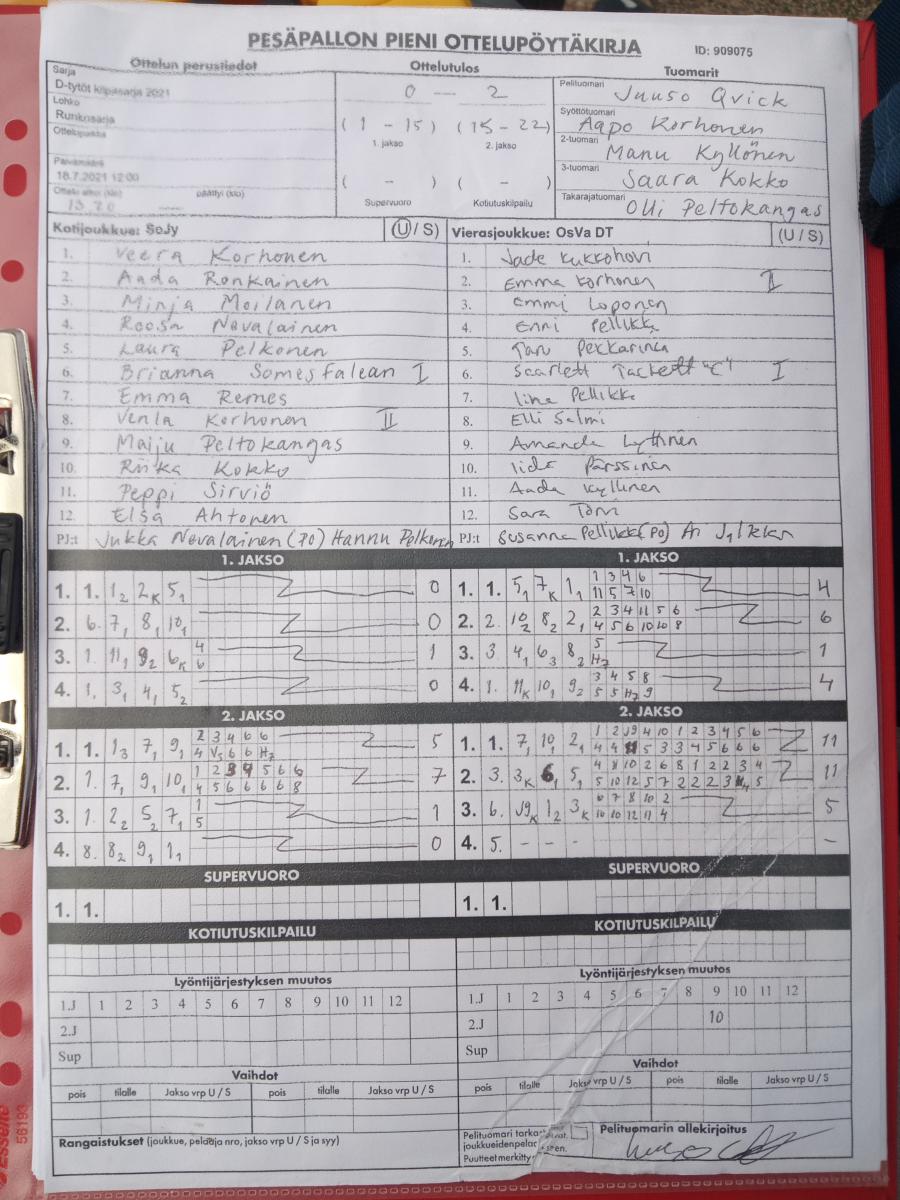 PESÄPALLON PIENI OTTELUPÖYTÄKIRJA
ID: 909075
Ottelun perustiedot
Sarja
D-tytöt kilpasarja 2021
Lohko
Runkosarja
Ottelupaikka
Päivämäärä
18.7.2021 12:00
Ottelu alkoi (klo) päättyi (klo)
Ottelutulos
0 — 2
(1 - 15) (15 - 22)
1. jakso 2. jakso
( - ) ( - )
Supervuoro Kotiutuskilpailu
Tuomarit
Pelituomari Juuso Qvick
Syöttötuomari Aapo Korhonen
2-tuomari Manu Kyllönen
3-tuomari Saara Kokko
Takarajatuomari Olli Peltokangas
Kotijoukkue: SoJy (U / S)
1. Veera Korhonen
2. Aada Ronkainen
3. Minja Moilanen
4. Roosa Nevalainen
5. Laura Pelkonen
6. Brianna Somesfalean I
7. Emma Remes
8. Venla Korhonen II
9. Maiju Peltokangas
10. Riika Kokko
11. Peppi Sirviö
12. Elsa Ahtonen
PJ:t Jukka Nevalainen (PO) Hannu Pelkonen
Vierasjoukkue: OsVa DT (U / S)
1. Jade Kukkohovi
2. Emma Korhonen II
3. Emmi Loponen
4. Enni Pellikka
5. Taru Pekkarinen
6. Scarlett Tackett "C" I
7. Iina Pellikka
8. Elli Salmi
9. Amanda Lyttinen
10. Iida Pärssinen
11. Aada Kyllinen
12. Sara Torvi
PJ:t Susanna Pellikka (PO) Ari
1. JAKSO
1. 1. 1₂ 2K 5₁ 0
2. 6. 7₁ 8₁ 10₁ 0
3. 1. 11₁ 9₂ 6K 4 6 1
4. 1. 3₁ 4₁ 5₂ 0
1. JAKSO
1. 1. 5₁ 7K 1₁ 1 3 4 6 4
11 5 7 10
2. 2. 10₂ 8₂ 2₁ 2 3 4 11 5 6 6
4 5 6 10 10 8
3. 3. 4₁ 6₃ 8₂ 5 H7 1
4. 1. 11K 10₁ 9₂ 3 4 5 8 4
5 5 H7 9
2. JAKSO
1. 1. 1₃ 7₁ 9₁ 2 3 4 6 6 5
4 V5 6 6 H7
2. 1. 7₁ 9₁ 10₁ 1 2 3 4 5 6 6 7
4 5 6 6 6 6 8
3. 1. 2₂ 5₂ 7₁ 1 5 1
4. 8. 8₂ 9₁ 1₁ 0
2. JAKSO
1. 1. 7₁ 10₁ 2₁ 1 2 J9 4 10 1 2 3 4 5 6 11
4 4 11 5 3 3 4 5 6 6 6
2. 3. 3K 6₁ 5₁ 4 8 10 2 6 8 1 2 2 3 4 11
5 10 12 5 7 2 2 2 3 4 5
3. 6. J9K 1₂ 3K 6 7 8 10 2 5
10 10 12 11 4
4. 5. - - - -
SUPERVUORO
1. 1.
SUPERVUORO
1. 1.
KOTIUTUSKILPAILU
KOTIUTUSKILPAILU
Lyöntijärjestyksen muutos
1.J 1 2 3 4 5 6 7 8 9 10 11 12
2.J
Sup
Lyöntijärjestyksen muutos
1.J 1 2 3 4 5 6 7 8 9 10 11 12
2.J 10
Sup
Vaihdot
pois tilalle Jakso vrp U / S pois tilalle Jakso vrp U / S
Vaihdot
pois tilalle Jakso vrp U / S pois tilalle Jakso vrp U / S
Rangaistukset (joukkue, pelaaja nro, jakso vrp U / S ja syy)
Pelituomari
joukkueiden
Puutteet
Pelituomarin allekirjoitus
Esselte
56193